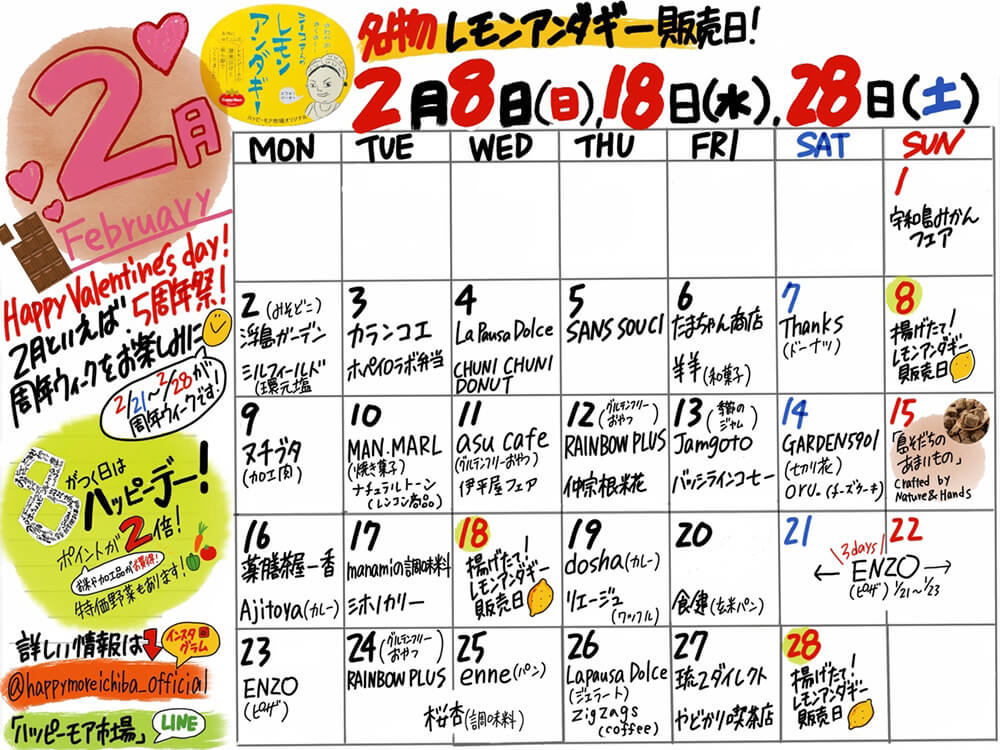 2月
February
Happy Valentine's day!
2月といえば、5周年祭!
周年ウィークをお楽しみに
2/21〜2/28が
周年ウィークです!
8がつく日は
ハッピーデー!
ポイントが2倍!
お米や加工品がお買得!
特価野菜もあります!
詳しい情報は
インスタグラム
@happymoreichiba_official
「ハッピーモア市場」
LINE
レモン
アンダギー
ハッピーモア市場オリジナル
名物 レモンアンダギー販売日!
2月8日(日),18日(水),28日(土)
MON TUE WED THU FRI SAT SUN
1
宇和島みかん
フェア
2 (みそどこ)
浮島ガーデン
シルフィールド
(環元塩
3
カランコエ
ホペイロラボ弁当
4
La Pausa Dolce
CHUNI CHUNI
DONUT
5
SANS SOUCI
6
たまちゃん商店
羊羊(和菓子)
7
Thanks
(ドーナツ)
8
揚げたて!
レモンアンダギー
販売日
9
ヌチブタ
(加工肉)
10
MAN.MARL
(焼き菓子)
ナチュラルトーン
(レンコン商品)
11
asu cafe
(グルテンフリーおやつ)
伊平屋フェア
12 (グルテンフリーおやつ)
RAINBOW PLUS
仲宗根米花
13 (季節のジャム)
Jamgoto
バッシラインコーヒー
14
GARDEN5901
(切り花)
oru.(チーズケーキ)
15
「島そだちの
あまいもの」
Crafted by
Nature & Hands
16
薬膳茶屋一香
Ajitoya(カレー)
17
manamiの調味料
ミホノカリー
18
揚げたて!
レモンアンダギー
販売日
19
dosha(カレー)
リエージュ
(ワッフル)
20
食健(玄米パン)
21 22
3days
← ENZO →
(ピザ) 1/21〜1/23
23
ENZO
(ピザ)
24 (グルテンフリーおやつ)
RAINBOW PLUS
25
enne(パン)
桜杏(調味料)
26
Lapausa Dolce
(ジェラート)
zigzags
(coffee)
27
琉2ダイレクト
やどかり喫茶店
28
揚げたて!
レモンアンダギー
販売日